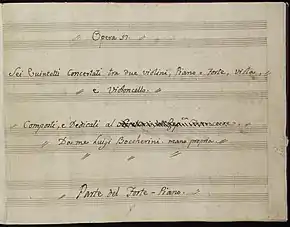 Opera 57.
Sei Quintetti Concertati tra due Violini, Piano-Forte, Viola,
e Violoncello.
Composti, e Dedicati al
Da me Luigi Boccherini mano propria.
Parte del Forte-Piano.